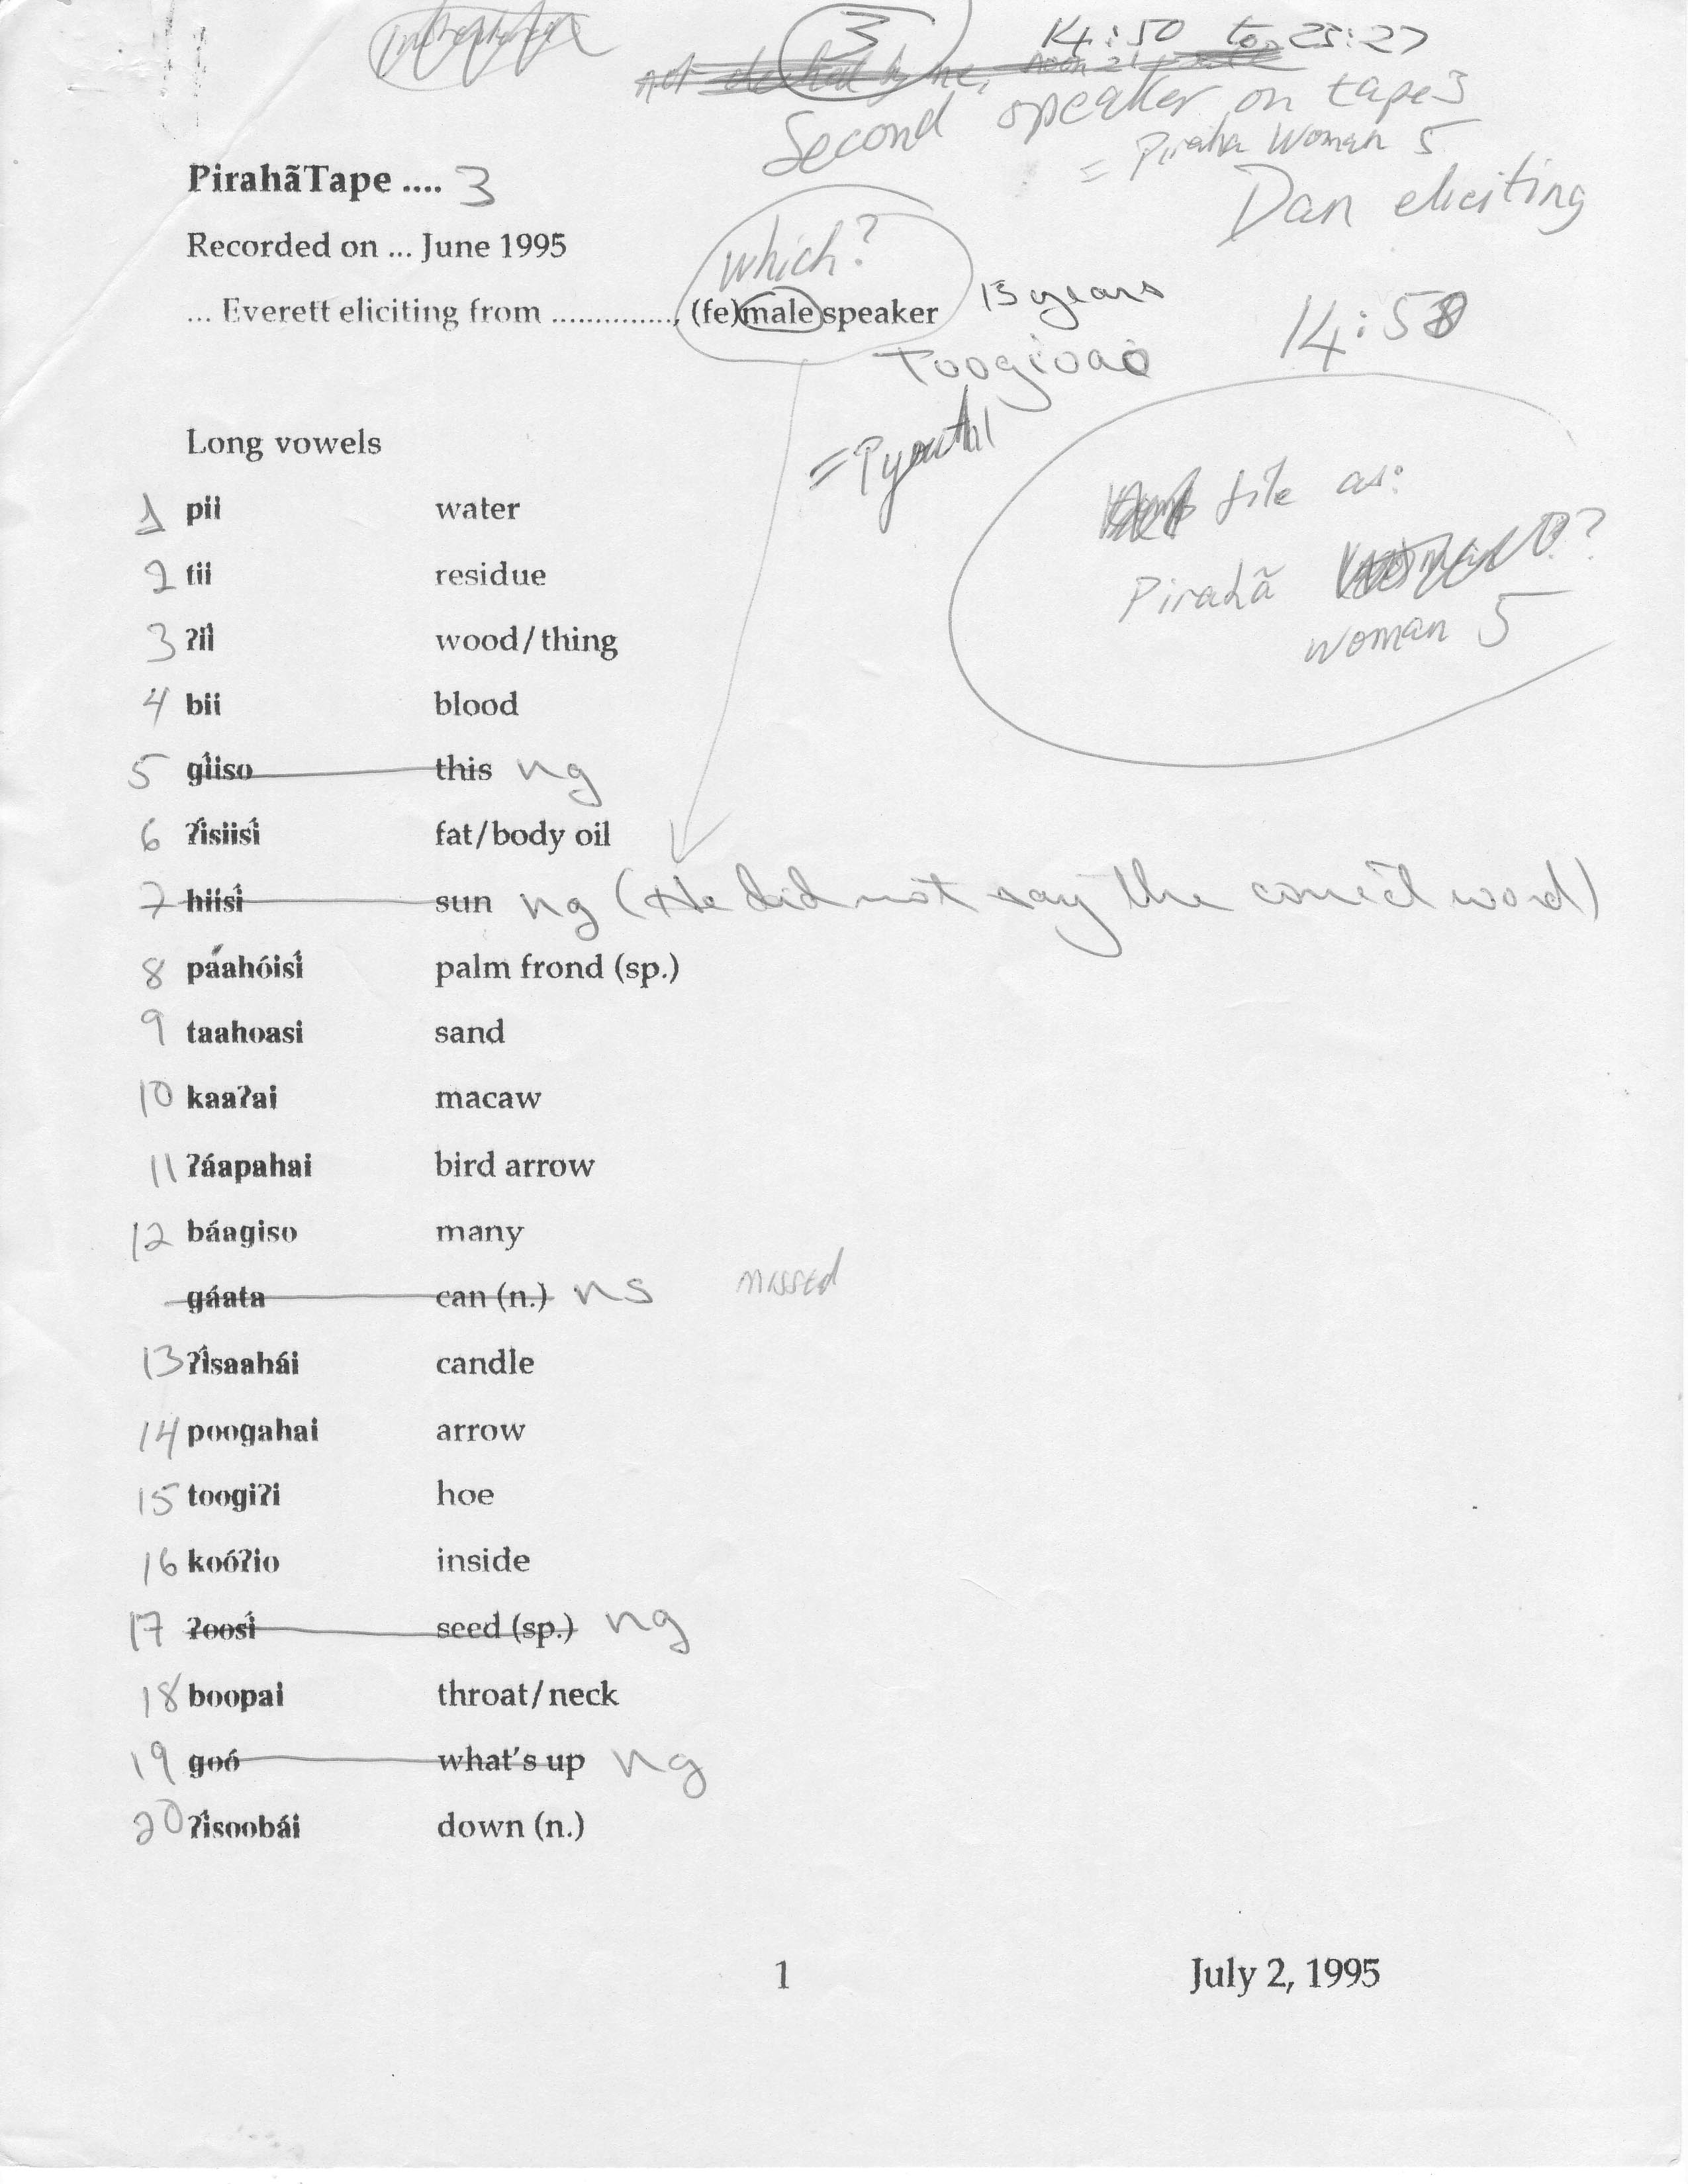 3 14:50 to 23:27
Second speaker on tape 3
= Piraha Woman 5
PirahãTape .... 3
Dan eliciting
Recorded on ... June 1995
which?
... Everett eliciting from .............., (fe)male speaker 13 years
14:58
Toogioao
Long vowels
file as:
Pirahã
woman 5
1 pii water
2 tii residue
3 ʔií wood/thing
4 bii blood
5 gíiso this ng
6 ʔísiisí fat/body oil
7 hiísí sun ng (He did not say the correct word)
8 páahóisí palm frond (sp.)
9 taahoasi sand
10 kaaʔai macaw
11 ʔáapahai bird arrow
12 báagiso many
gáata can (n.) ns missed
13 ʔísaahái candle
14 poogahai arrow
15 toogiʔi hoe
16 koóʔio inside
17 ʔoosí seed (sp.) ng
18 boopai throat/neck
19 goó what's up ng
20 ʔísoobái down (n.)
1 July 2, 1995